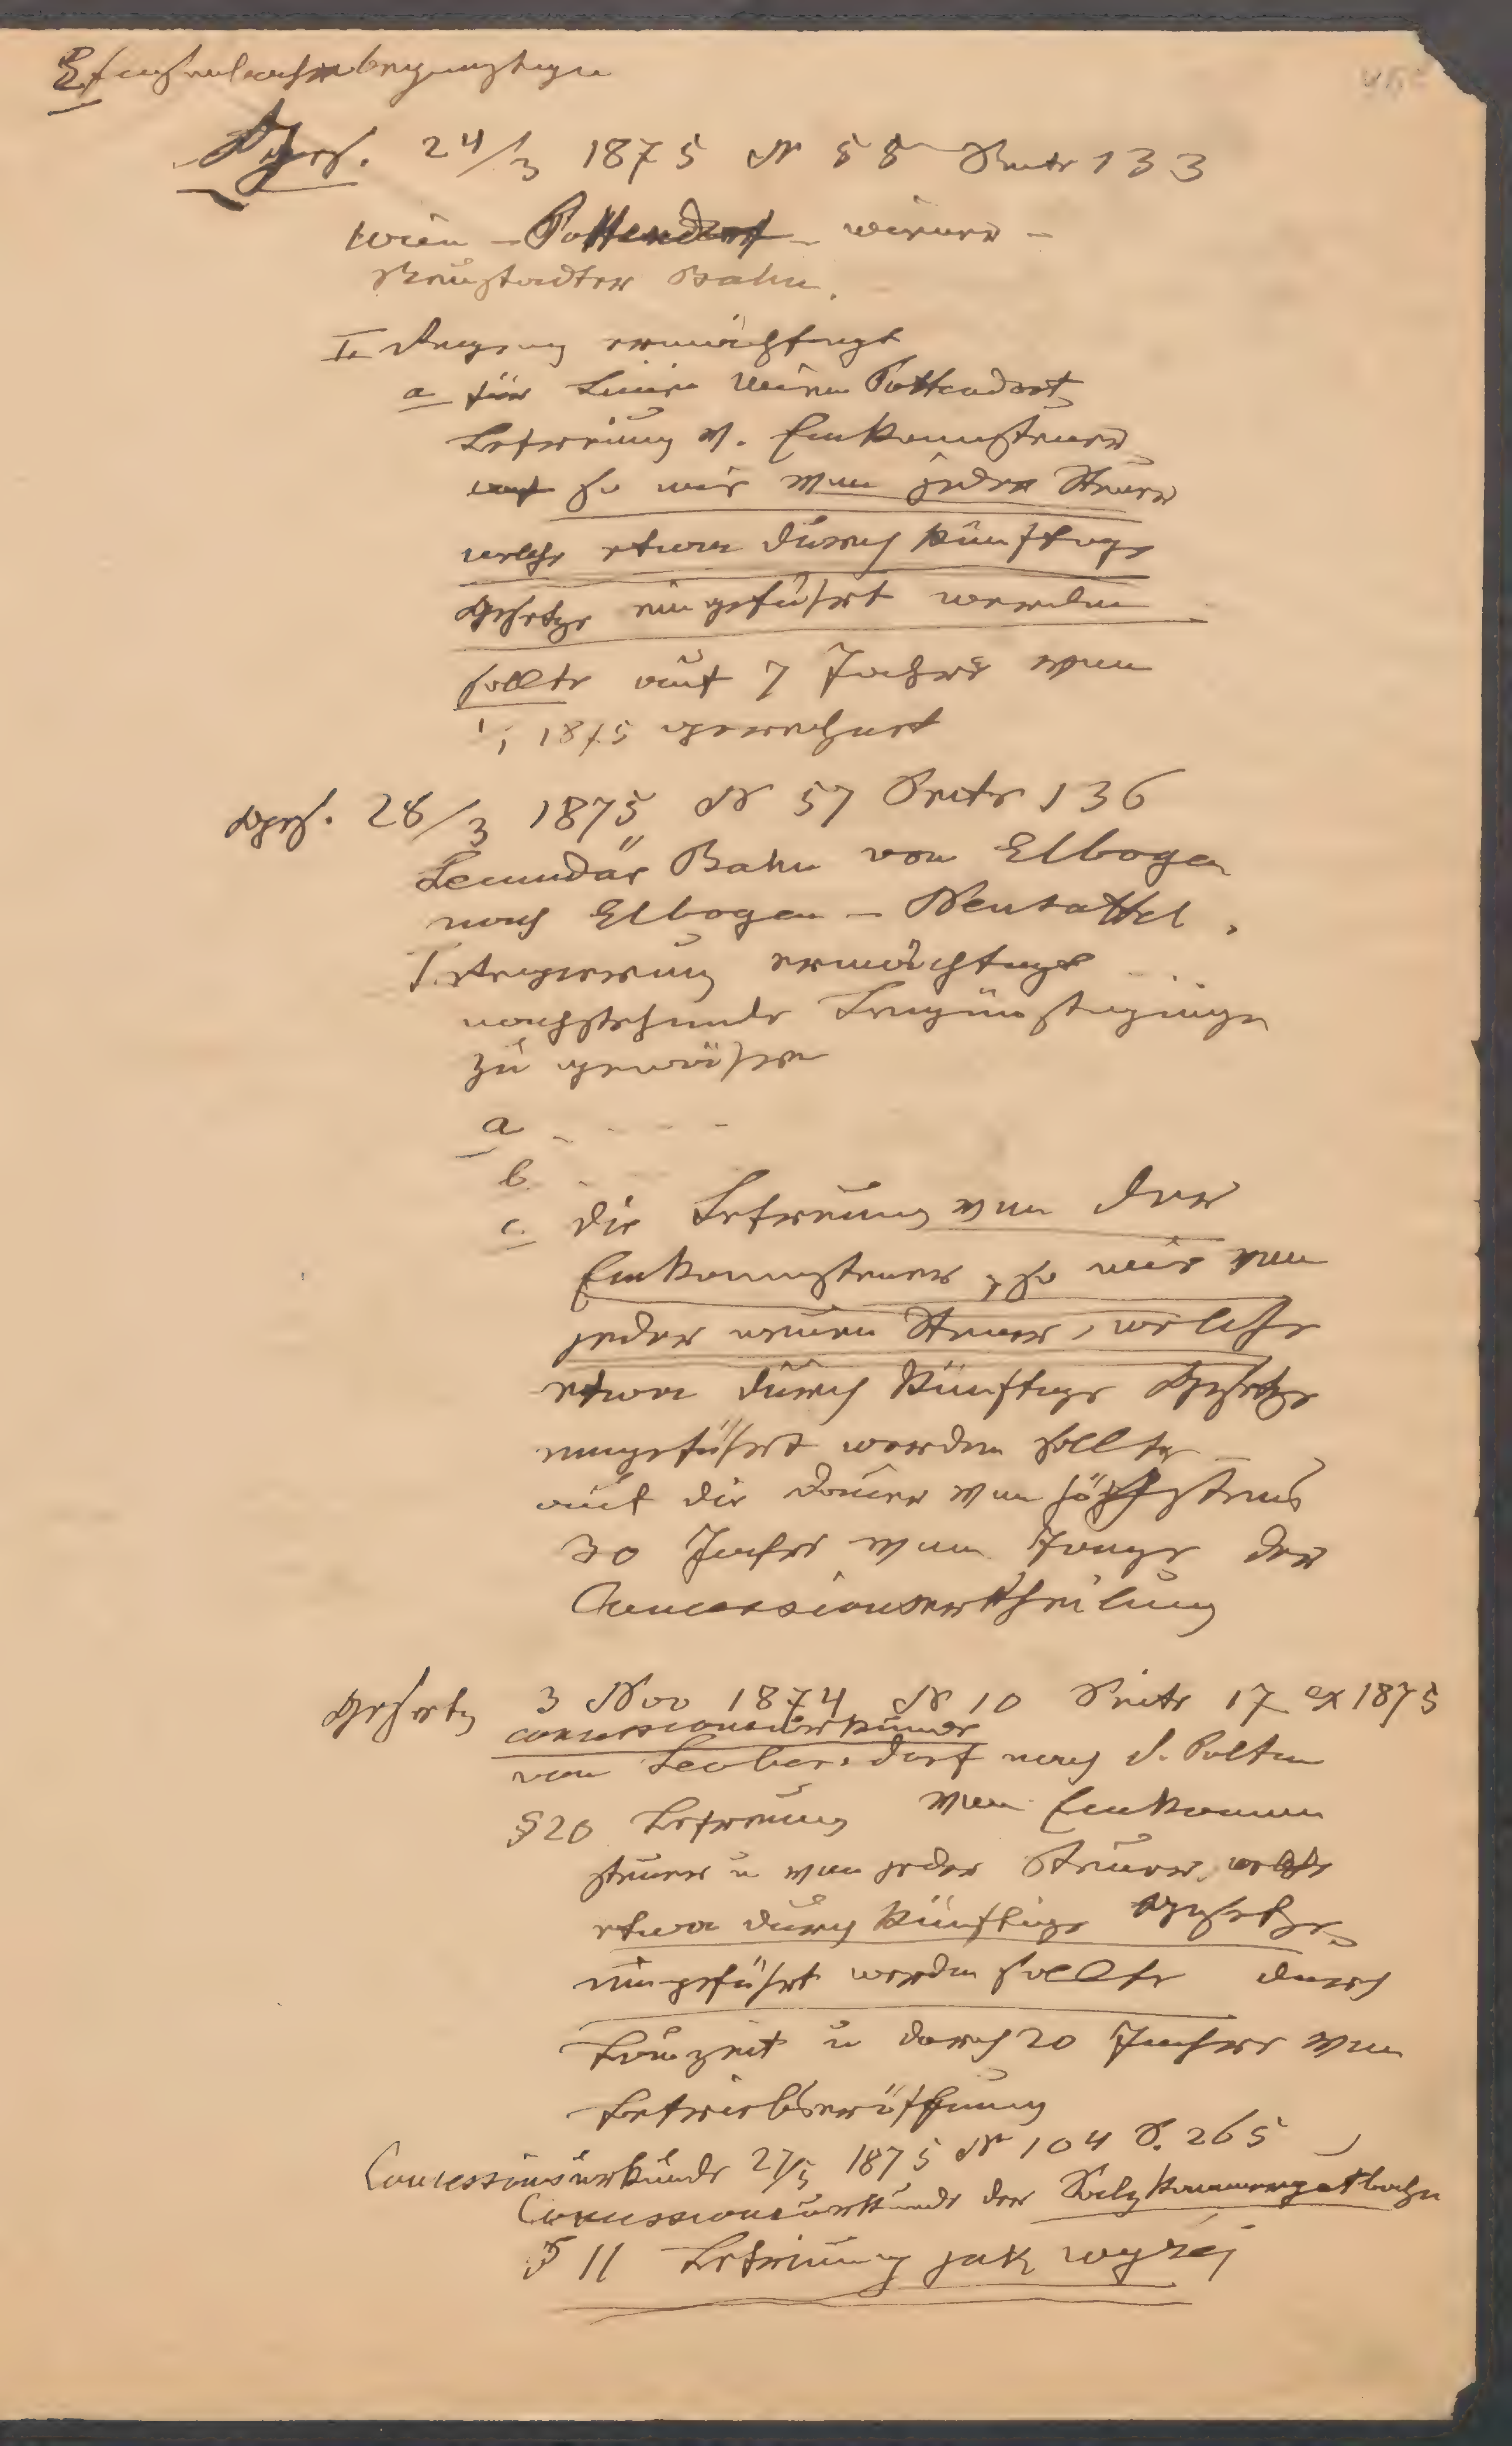 Eisenbahnbegünstigen
Ges. 24/3 1875 N 55 Seite 133
Wien – Pottendorf – Wiener –
Neustadter Bahn.
I. Regirung ermächtigt
a für Linie Wien Pottendorf
Befreiung v. Einkommsteuer
so wie von jeder Steuer
welche etwa durch künftige
Gesetze eingeführt werden
sollte auf 7 Jahre von
1/1 1875 gerechnet
Ges. 28/3 1875 N 57 Seite 136
Secundär Bahn von Elbogen
nach Elbogen – Neusattel.
I. Regierung ermächtigt
nachstehende Begünstigungen
zu gewähren
a - - - -
b -
c. die Befreiung von der
Einkommsteuer, so wie von
jeder neuen Steuer, welche
etwa durch künftige Gesetze
eingeführt werden sollte –
auf die Dauer von höchstens
30 Jahre vom Tage der
Concessionsertheilung
Gesetz 3 Nov 1874 N 10 Seite 17 ex 1875
Concessionsurkunde
von Leobersdorf nach S. Polten
§ 20 Befreiung von Einkommen
steuer u von jeder Steuer, welche
etwa durch künftige Gesetze
eingeführt werden sollte durch
Bauzeit u durch 20 Jahre von
Betriebseröffnung
Concessionsurkunde 27/5 1875 N 104 S. 265
Concessionsurkunde der Salzkammergutbahn
§ 11 Befreiung jak wyżej